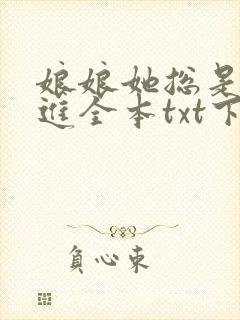 娘娘她总是
进全本txt下
负心东